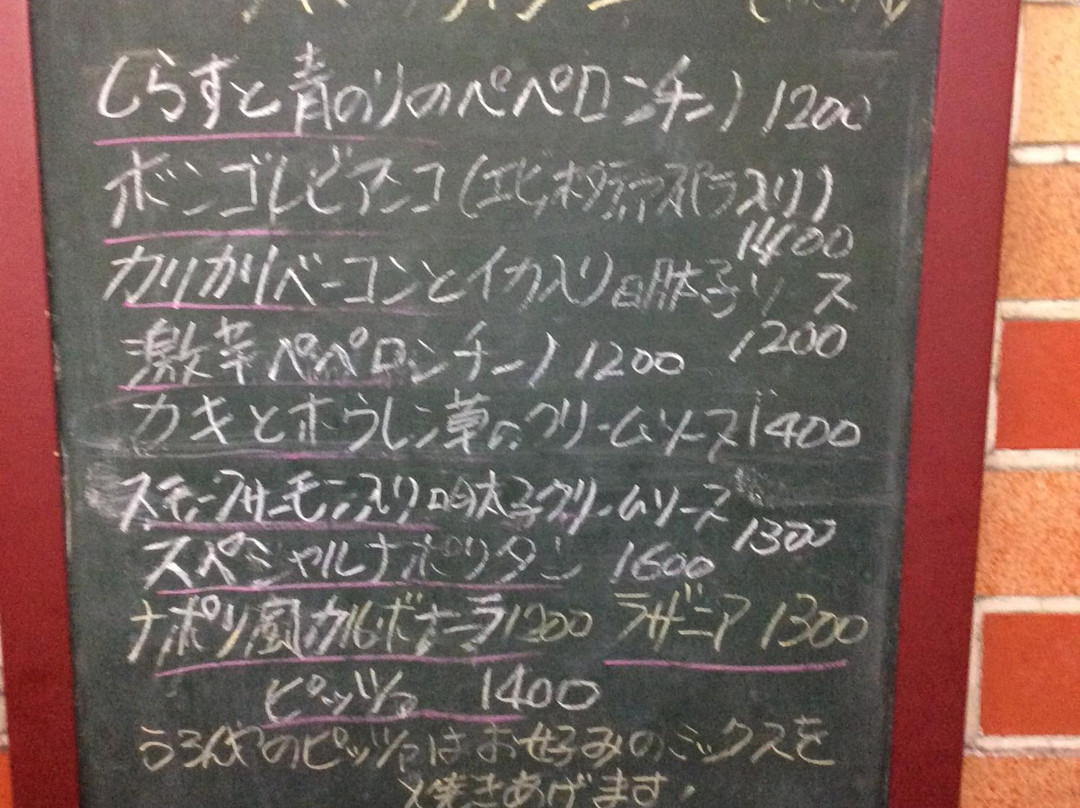 しらすと青のりのペペロンチーノ 1200
ボンゴレビアンコ(エビ、ホタテ、アスパラ入り)
1400
カリカリベーコンとイカ入り明太子ソース
1200
激辛ペペロンチーノ 1200
カキとホウレン草のクリームソース 1400
スモークサーモン入り明太子クリームソース
1300
スペシャルナポリタン 1600
ナポリ風カルボナーラ 1200 ラザニア 1300
ピッツァ 1400
のピッツァはお好みのミックスを
焼きあげます。